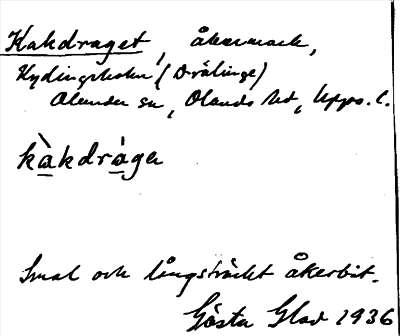 Kakdraget, åkermark,
Kydingeholm (Drälinge)
Ålands sn, Ulands hd, Upps. l.
kàkdràga
Smal och långsträckt åkerbit.
Gösta Glad 1936